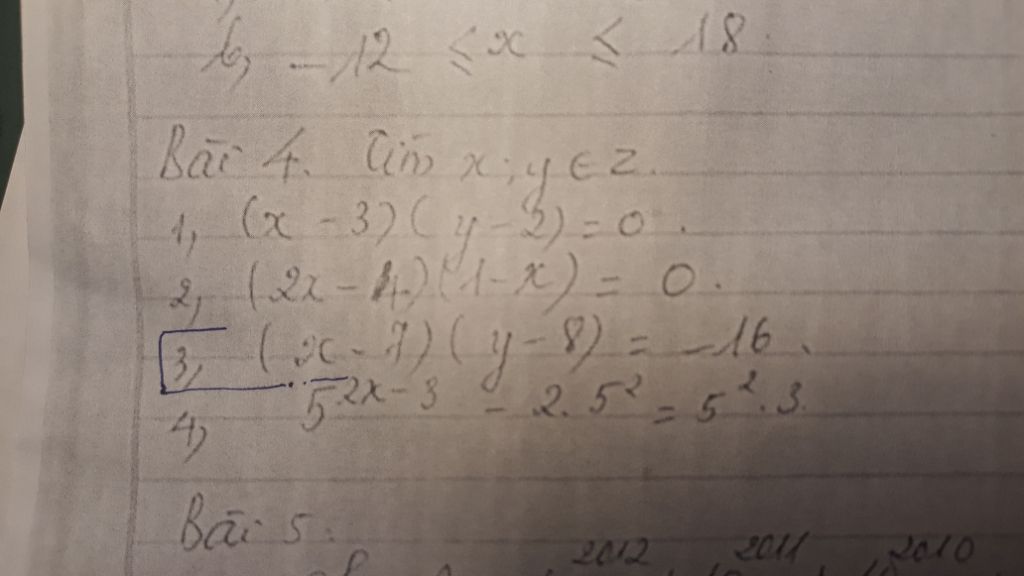 b, -12 ≤ x ≤ 18.
Bài 4. Tìm x; y ∈ Z.
1, (x - 3)(y - 2) = 0.
2, (2x - 4)(1 - x) = 0.
3, (x - 7)(y - 8) = -16.
4, 5^{2x-3} - 2.5² = 5².3.
Bài 5:
2012 2011 2010